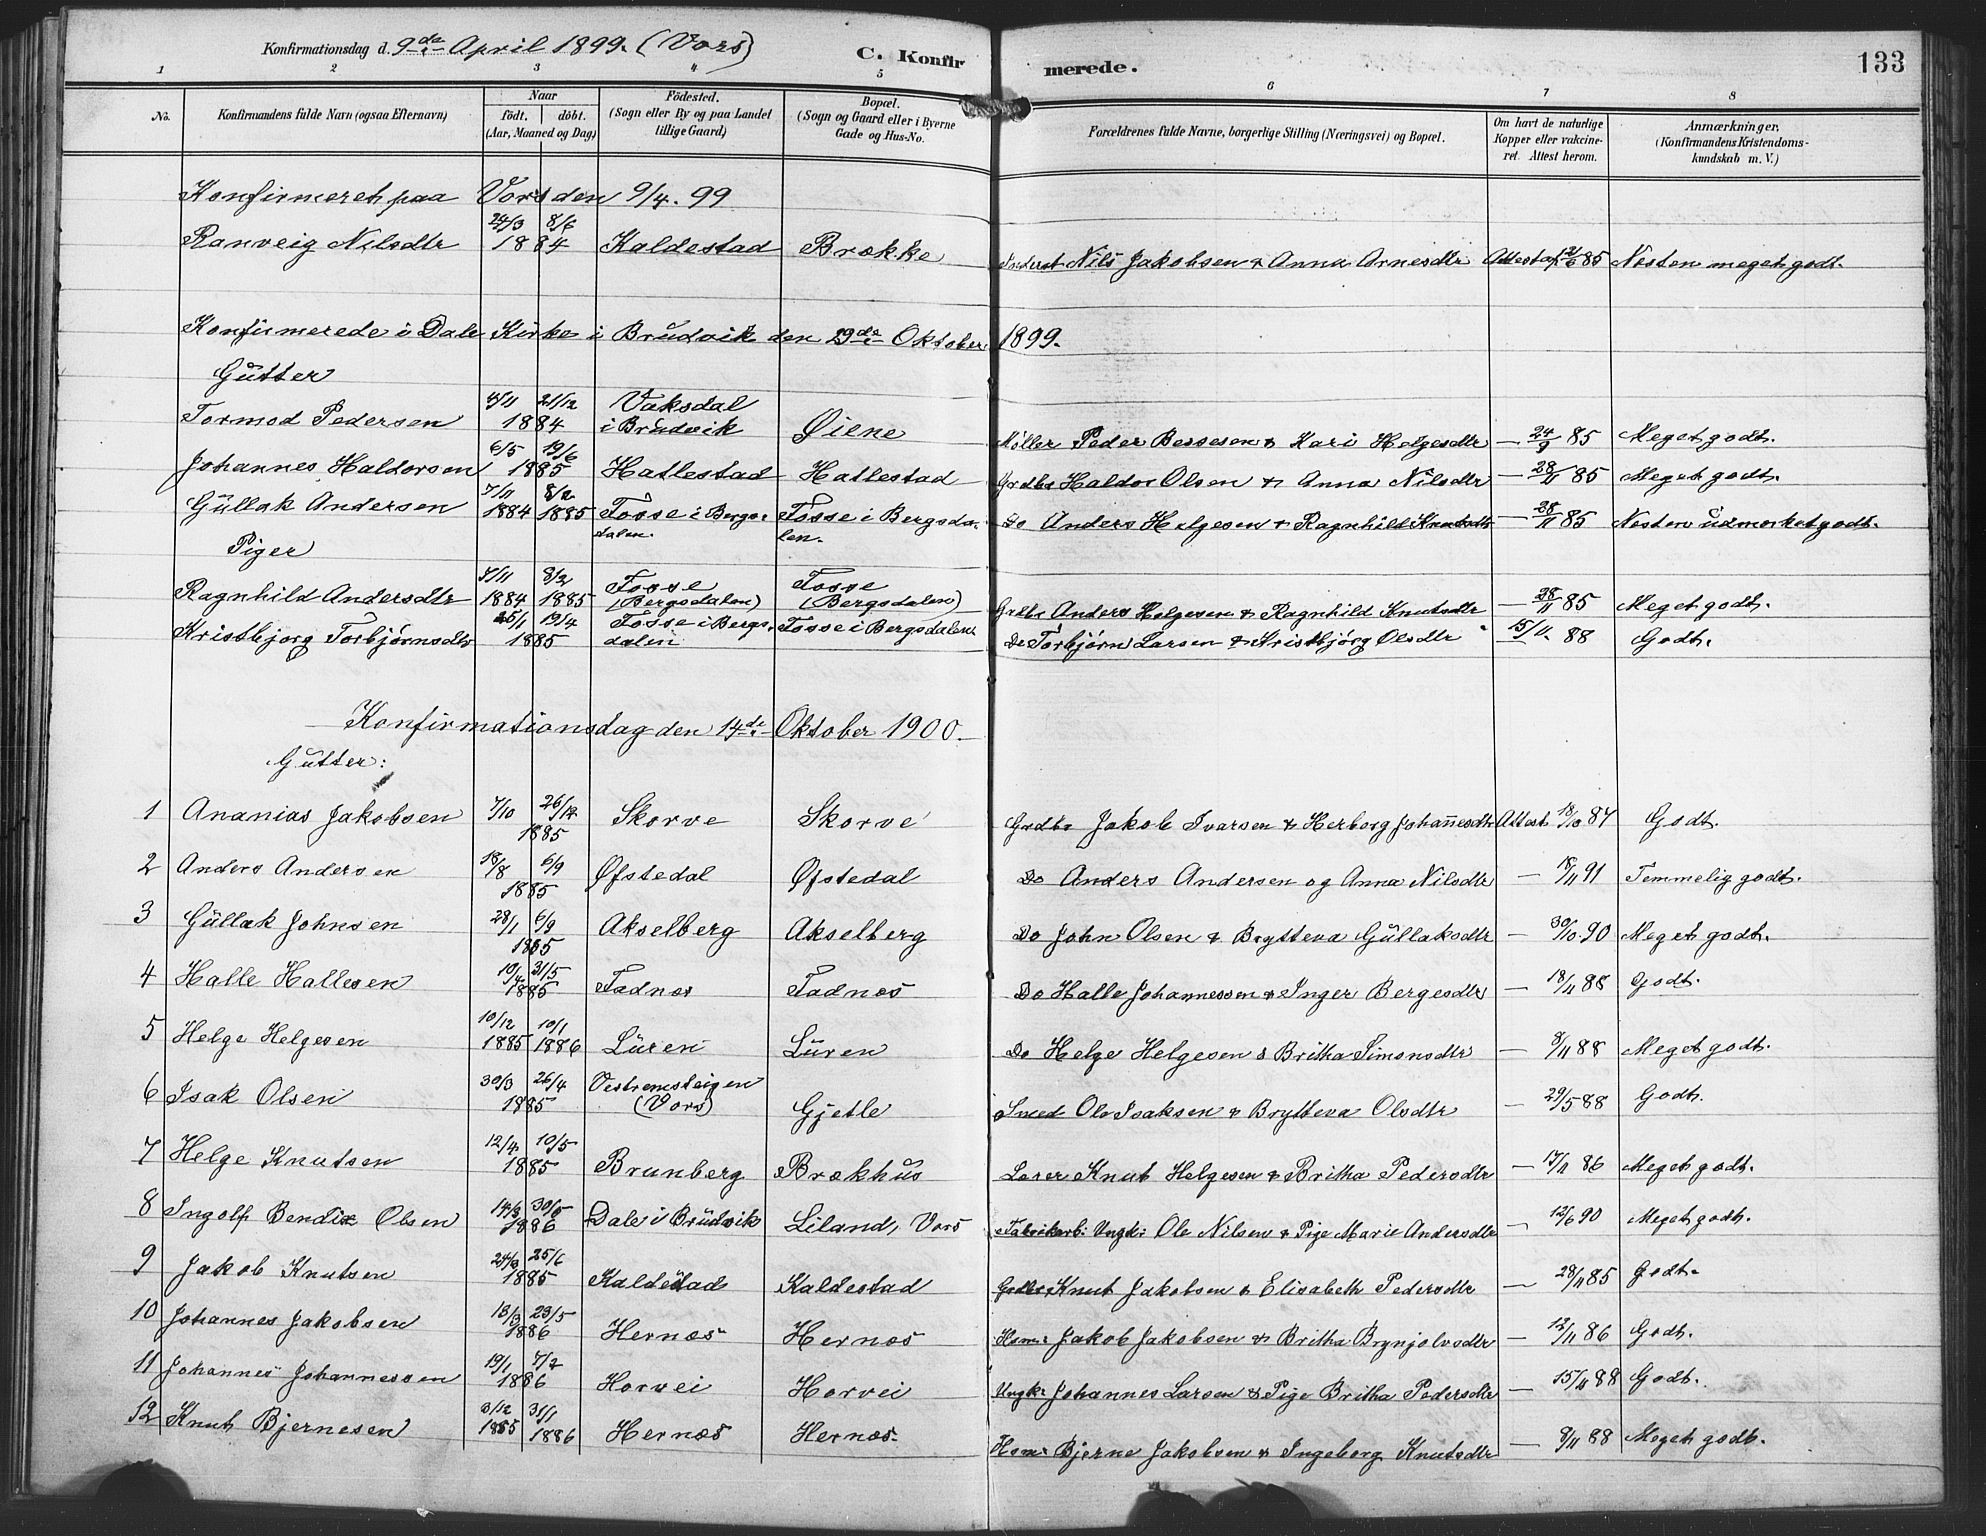 Konfirmationsdag d. 9de April 1899. (Vors) C. Konfirmerede. 133
1 2 3 4 5 6 7 8
No. Konfirmandens fulde Navn (ogsaa Efternavn) Naar født. døbt. (Aar, Maaned og Dag) Fødested. (Sogn eller By og paa Landet tillige Gaard) Bopæl. (Sogn og Gaard eller i Byerne Gade og Hus-No. Forældrenes fulde Navne, borgerlige Stilling (Næringsvei) og Bopæl. Om havt de naturlige Kopper eller vakcineret. Attest herom. Anmærkninger. (Konfirmandens Kristendomskundskab m. V.)
Konfirmeret paa Vors den 9/4. 99
Ranveig Nilsdtr 24/3 8/6 1884 Kaldestad Brække Inderst Nils Jakobsen & Anna Arnesdtr Attest af 85 Næsten meget godt.
Konfirmerede i Dale Kirke i Brudvik den 29de Oktober 1899.
Gutter
Tormod Pedersen 4/11 21/12 1884 Vaksdal i Brudvik Øiene Møller Peder Bessesen & Kari Helgesdtr — 24/9 85 Meget godt.
Johannes Haldorsen 6/5 19/6 1885 Hatlestad Hatlestad Grdbr Haldor Olsen & Anna Nilsdtr — 28/11 85 Meget godt.
Gullak Andersen 7/11 1884 8/2 1885 Fosse i Bergsdalen. Fosse i Bergsdalen. Do Anders Helgesen & Ragnhild Knutsdtr — 28/11 85 Næsten udmerket godt.
Piger
Ragnhild Andersdtr 7/11 1884 8/2 1885 Fosse (Bergsdalen) Fosse (Bergsdalen) Grdbr Anders Helgesen & Ragnhild Knutsdtr — 28/11 85 Meget godt.
Kristbjorg Torbjørnsdtr 25/1 19/4 1885 Fosse i Bergsdalen Fosse i Bergsdalen. Do Torbjørn Larsen & Kristbjørg Olsdtr 15/11. 88 Godt.
Konfirmationsdag den 14de Oktober 1900.
Gutter:
1 Ananias Jakobsen 7/10 26/12 1885 Skorve Skorve Grdbr Jakob Ivarsen & Herborg Johannesdtr Attest 18/10 87 Godt.
2 Anders Andersen 18/8 6/9 1885 Øfstedal Øfstedal Do Anders Andersen og Anna Nilsdtr — 18/11 91 Temmelig godt.
3 Gullak Johnsen 28/1 6/9 1885 Akselberg Akselberg Do John Olsen & Brytteva Gullaksdtr — 30/10. 90 Meget godt.
4 Halle Hallesen 10/4 31/5 1885 Fadnes Fadnes Do Halle Johannessen & Inger Bergesdtr — 18/11 88 Godt.
5 Helge Helgesen 10/12 1885 10/1 1886 Luren Luren Do Helge Helgesen & Britha Simonsdtr — 8/11 88 Meget godt.
6 Isak Olsen 30/3 26/4 1885 Vestremsteigen (Vors) Gjetle Smed Ole Isaksen & Brytteva Olsdtr — 29/5 88 Godt.
7 Helge Knutsen 12/4 10/5 1885 Brunberg Brækhus Lærer Knut Helgesen & Britha Pedersdtr — 17/11 86 Meget godt.
8 Ingolf Bendix Olsen 14/3 30/5 1886 Dale i Brudvik Liland, Vors Fabrikarb. Ungk. Ole Nilsen & Pige Marie Andersdtr — 12/6 90 Meget godt.
9 Jakob Knutsen 24/3 25/6 1885 Kaldestad Kaldestad Grdbr. Knut Jakobsen & Elisabeth Pedersdtr — 28/11 85 Godt.
10 Johannes Jakobsen 13/3 23/5 1886 Hernæs Hernæs Hsm. Jakob Jakobsen & Britha Brynjolvsdtr — 12/11 86 Godt.
11 Johannes Johannessen 19/1 7/2 1886 Horvei Horvei Ungk. Johannes Larsen & Pige Britha Pedersdtr — 15/11 88 Godt.
12 Knut Bjernesen 3/12 1885 31/1 1886 Hernæs Hernæs. Hsm. Bjerne Jakobsen & Ingeborg Knutsdtr — 8/11 88 Meget godt.